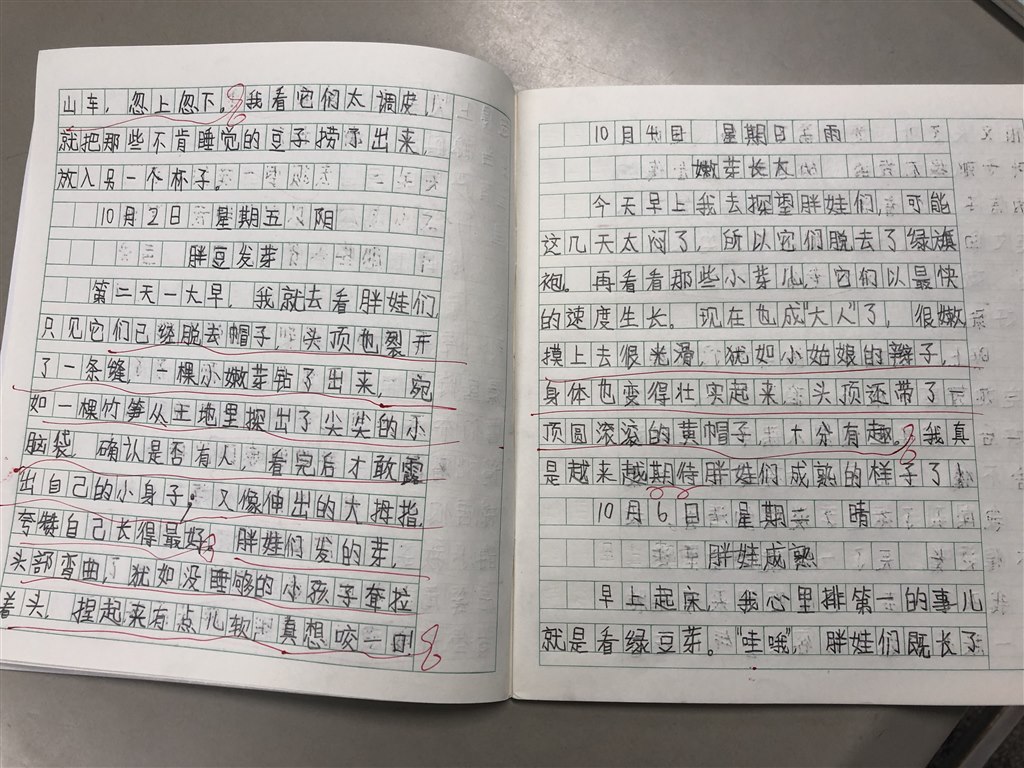 山车，忽上忽下。我看它们太调皮，
就把那些不肯睡觉的豆子捞了出来，
放入另一个杯子。
10月2日 星期五 阴
胖豆发芽
第二天一大早，我就去看胖娃们，
只见它们已经脱去帽子，头顶也裂开
了一条缝，一棵小嫩芽钻了出来，宛
如一棵竹笋从土地里探出了尖尖的小
脑袋，确认是否有人，看完后才敢露
出自己的小身子；又像伸出的大拇指，
夸赞自己长得最好。胖娃们发的芽，
头部弯曲，犹如没睡够的小孩子耷拉
着头，捏起来有点儿软，真想咬一口！
10月4日 星期日 雨
嫩芽长大
今天早上我去探望胖娃们，可能
这几天太闷了，所以它们脱去了绿旗
袍。再看看那些小芽儿，它们以最快
的速度生长。现在也成“大人”了，很嫩，
摸上去很光滑，犹如小姑娘的辫子，
身体也变得壮实起来，头顶还带了一
顶圆滚滚的黄帽子，十分有趣。我真
是越来越期待胖娃们成熟的样子了！
10月6日 星期二 晴
胖娃成熟
早上起床，我心里排第一的事儿
就是看绿豆芽。“哇哦”，胖娃们既长了